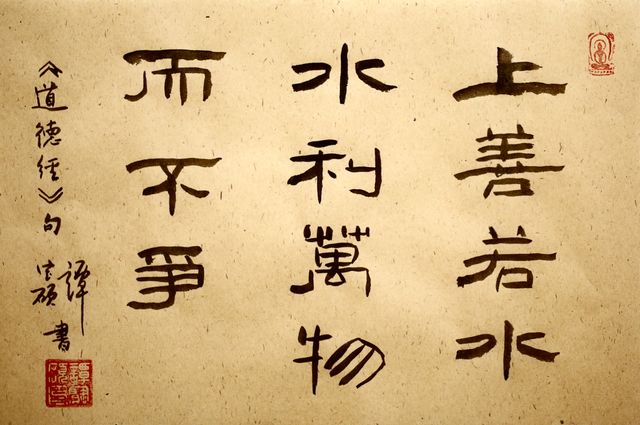 上善若水
水利萬物
而不爭
《道德經》句
譚
書